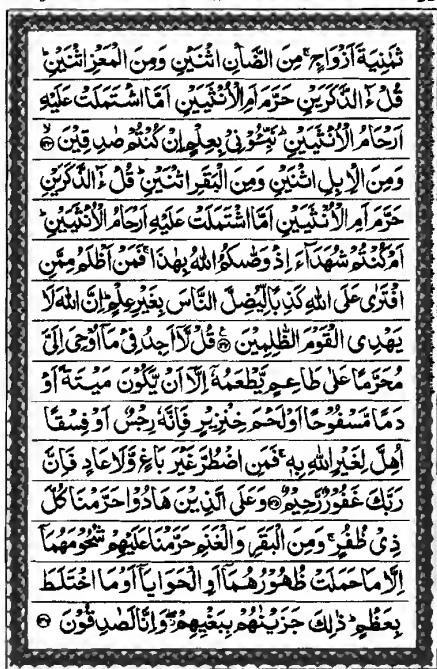 ثَمٰنِيَةَ اَزْوَاجٍ ۚ مِنَ الضَّاْنِ اثْنَيْنِ وَمِنَ الْمَعْزِ اثْنَيْنِ ؕ
قُلْ ءٰٓالذَّكَرَيْنِ حَرَّمَ اَمِ الْاُنْثَيَيْنِ اَمَّا اشْتَمَلَتْ عَلَيْهِ
اَرْحَامُ الْاُنْثَيَيْنِ ؕ نَبِّـُٔوْنِيْ بِعِلْمٍ اِنْ كُنْتُمْ صٰدِقِيْنَ ۙ﴿۱۴۳﴾
وَمِنَ الْاِبِلِ اثْنَيْنِ وَمِنَ الْبَقَرِ اثْنَيْنِ ؕ قُلْ ءٰٓالذَّكَرَيْنِ
حَرَّمَ اَمِ الْاُنْثَيَيْنِ اَمَّا اشْتَمَلَتْ عَلَيْهِ اَرْحَامُ الْاُنْثَيَيْنِ ؕ
اَمْ كُنْتُمْ شُهَدَآءَ اِذْ وَصّٰىكُمُ اللّٰهُ بِهٰذَا ۚ فَمَنْ اَظْلَمُ مِمَّنِ
افْتَرٰى عَلَى اللّٰهِ كَذِبًا لِّيُضِلَّ النَّاسَ بِغَيْرِ عِلْمٍ ؕ اِنَّ اللّٰهَ لَا
يَهْدِى الْقَوْمَ الظّٰلِمِيْنَ ﴿۱۴۴﴾ قُلْ لَّآ اَجِدُ فِيْ مَآ اُوْحِيَ اِلَيَّ
مُحَرَّمًا عَلٰى طَاعِمٍ يَّطْعَمُهٗٓ اِلَّآ اَنْ يَّكُوْنَ مَيْتَةً اَوْ
دَمًا مَّسْفُوْحًا اَوْ لَحْمَ خِنْزِيْرٍ فَاِنَّهٗ رِجْسٌ اَوْ فِسْقًا
اُهِلَّ لِغَيْرِ اللّٰهِ بِهٖ ۚ فَمَنِ اضْطُرَّ غَيْرَ بَاغٍ وَّلَا عَادٍ فَاِنَّ
رَبَّكَ غَفُوْرٌ رَّحِيْمٌ ﴿۱۴۵﴾ وَعَلَى الَّذِيْنَ هَادُوْا حَرَّمْنَا كُلَّ
ذِيْ ظُفُرٍ ۚ وَمِنَ الْبَقَرِ وَالْغَنَمِ حَرَّمْنَا عَلَيْهِمْ شُحُوْمَهُمَآ
اِلَّا مَا حَمَلَتْ ظُهُوْرُهُمَآ اَوِ الْحَوَايَآ اَوْ مَا اخْتَلَطَ
بِعَظْمٍ ؕ ذٰلِكَ جَزَيْنٰهُمْ بِبَغْيِهِمْ ۖ وَاِنَّا لَصٰدِقُوْنَ ﴿۱۴۶﴾